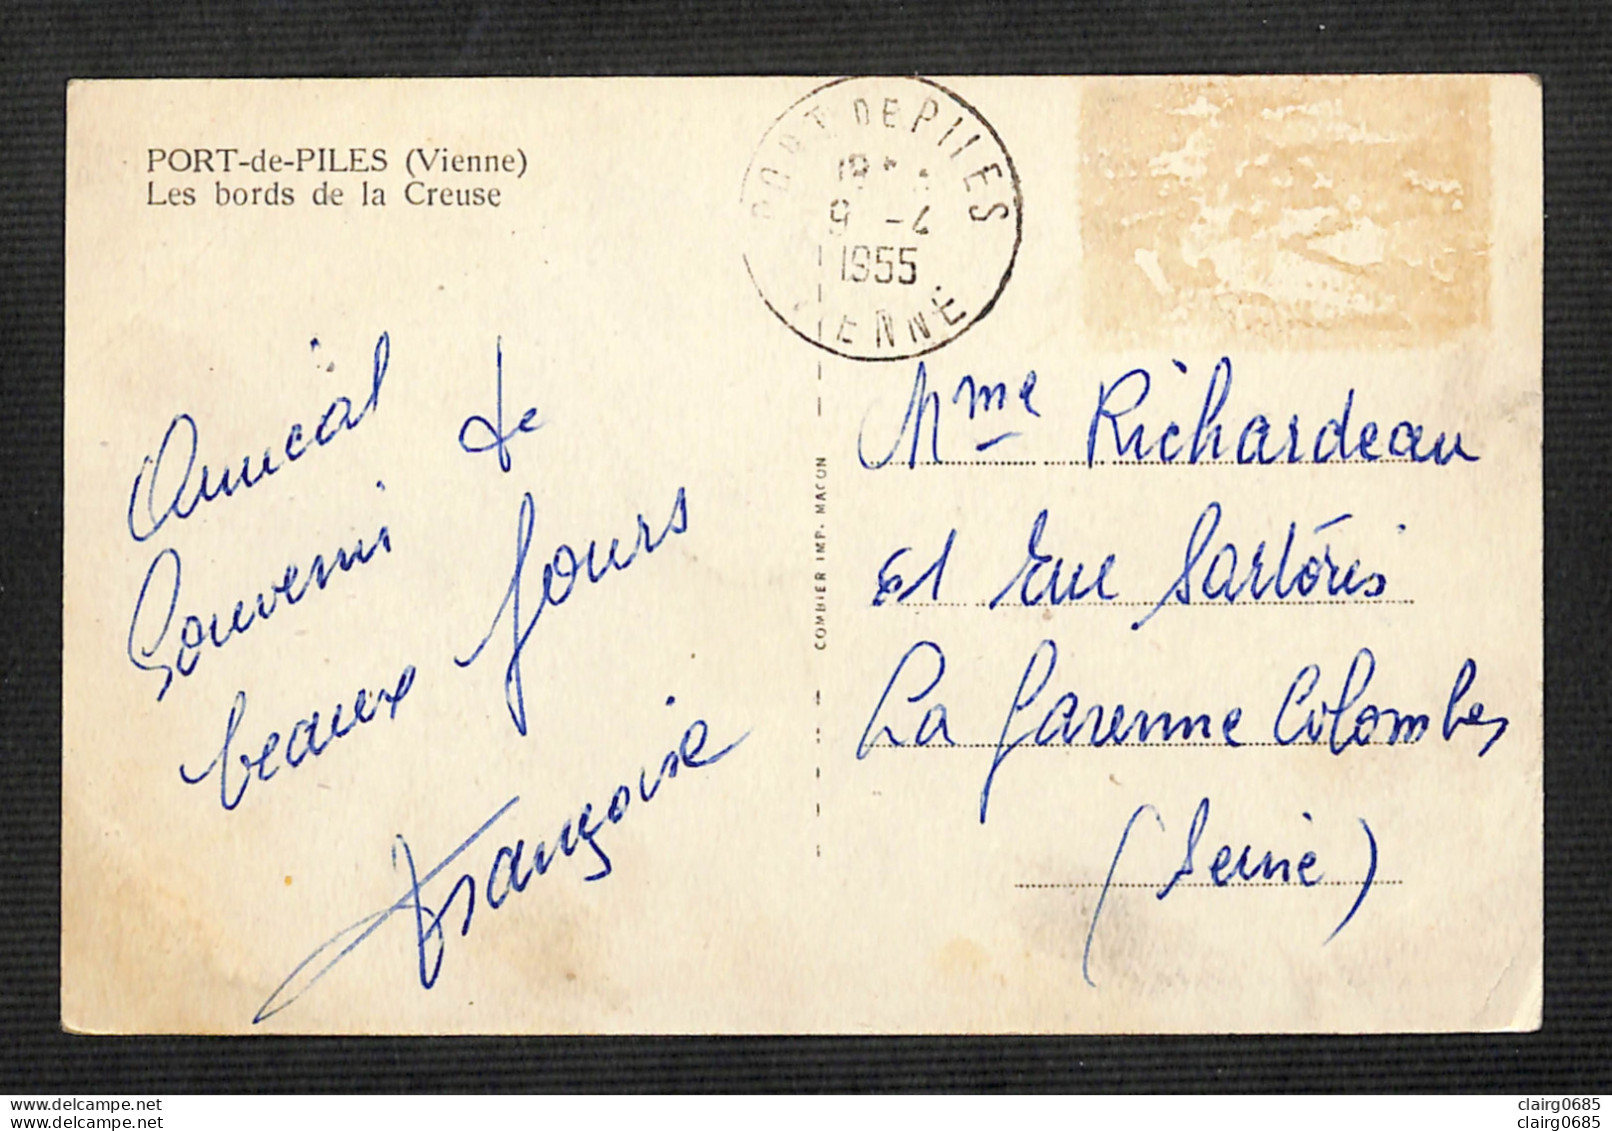 PORT-de-PILES (Vienne)
Les bords de la Creuse
PORT DE PILES
18
9 -4
1955
VIENNE
Amical
Souvenir de
beaux Jours
Françoise
COMBIER IMP. MACON
Mme Richardeau
51 Rue Sartoris
La Garenne Colombes
(Seine)
www.delcampe.net
www.delcampe.net
clairg0685
clairg0685